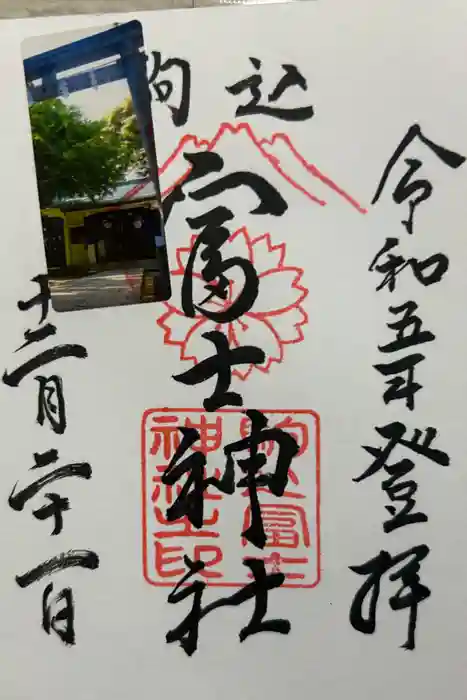 駒込
富士神社
令和五年登拝
十二月二十一日
駒込富士
神社之印